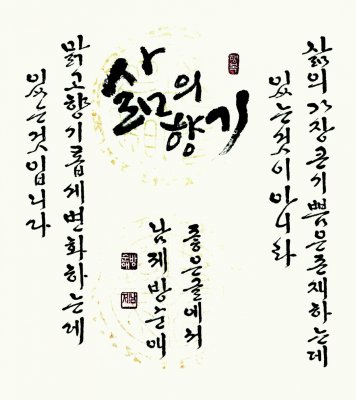 삶의
향기
삶의 가장 큰 기쁨은 존재하는데
있는것이 아니라
맑고 향기롭게 변화하는데
있는것입니다
좋은글에서
남제 방순애